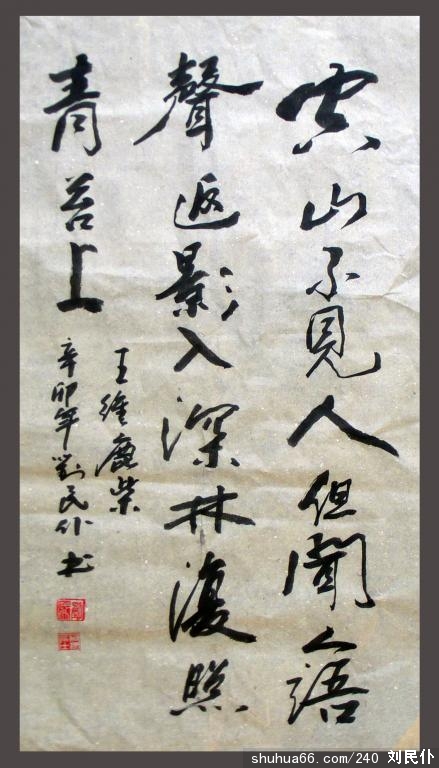 空山不見人但聞人語
聲返影入深林復照
青苔上
王維鹿柴
辛卯年劉民仆书
shuhua66.com/240 刘民仆